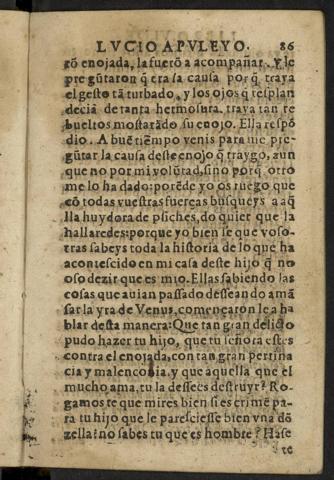 LVCIO APVLEYO. 86
rō enojada, la fuerō a acompañar. y le
pregūtaron q̄ era sa causa porq̄ traya
el gesto tā turbado, y los ojos q̄ resplan
deciā de tanta hermosura. traya tan re
bueltos mostarādo su enojo. Ella respō
dio. A buē tiēmpo venis para me pre-
gūtar la causa deste enojo q̄ traygo, aun
que no por mi volūtad, sino porq̄ otro
me lo ha dado: porēde yo os ruego que
cō todas vuestras fuerças busqueys a aq̄
lla huydora de psiches, do quier que la
hallaredes: porque yo bien se que voso-
tras sabeys toda la historia de lo que ha
acontescido en mi casa deste hijo q̄ no
oso dezir que es mio. Ellas sabiendo las
cosas que auian passado desseando amā
sar la yra de Venus, començaron le a ha
blar desta manera: Que tan gran delicto
pudo hazer tu hijo, que tu señora estes
contra el enojada, con tan gran pertina
cia y malenconia, y que aquella que el
mucho ama, tu la dessees destruyr? Ro-
gamos te que mires bien si es crimē pa-
ra tu hijo que le paresciesse bien vna dō
zella: no sabes tu que es hombre? Hase
te